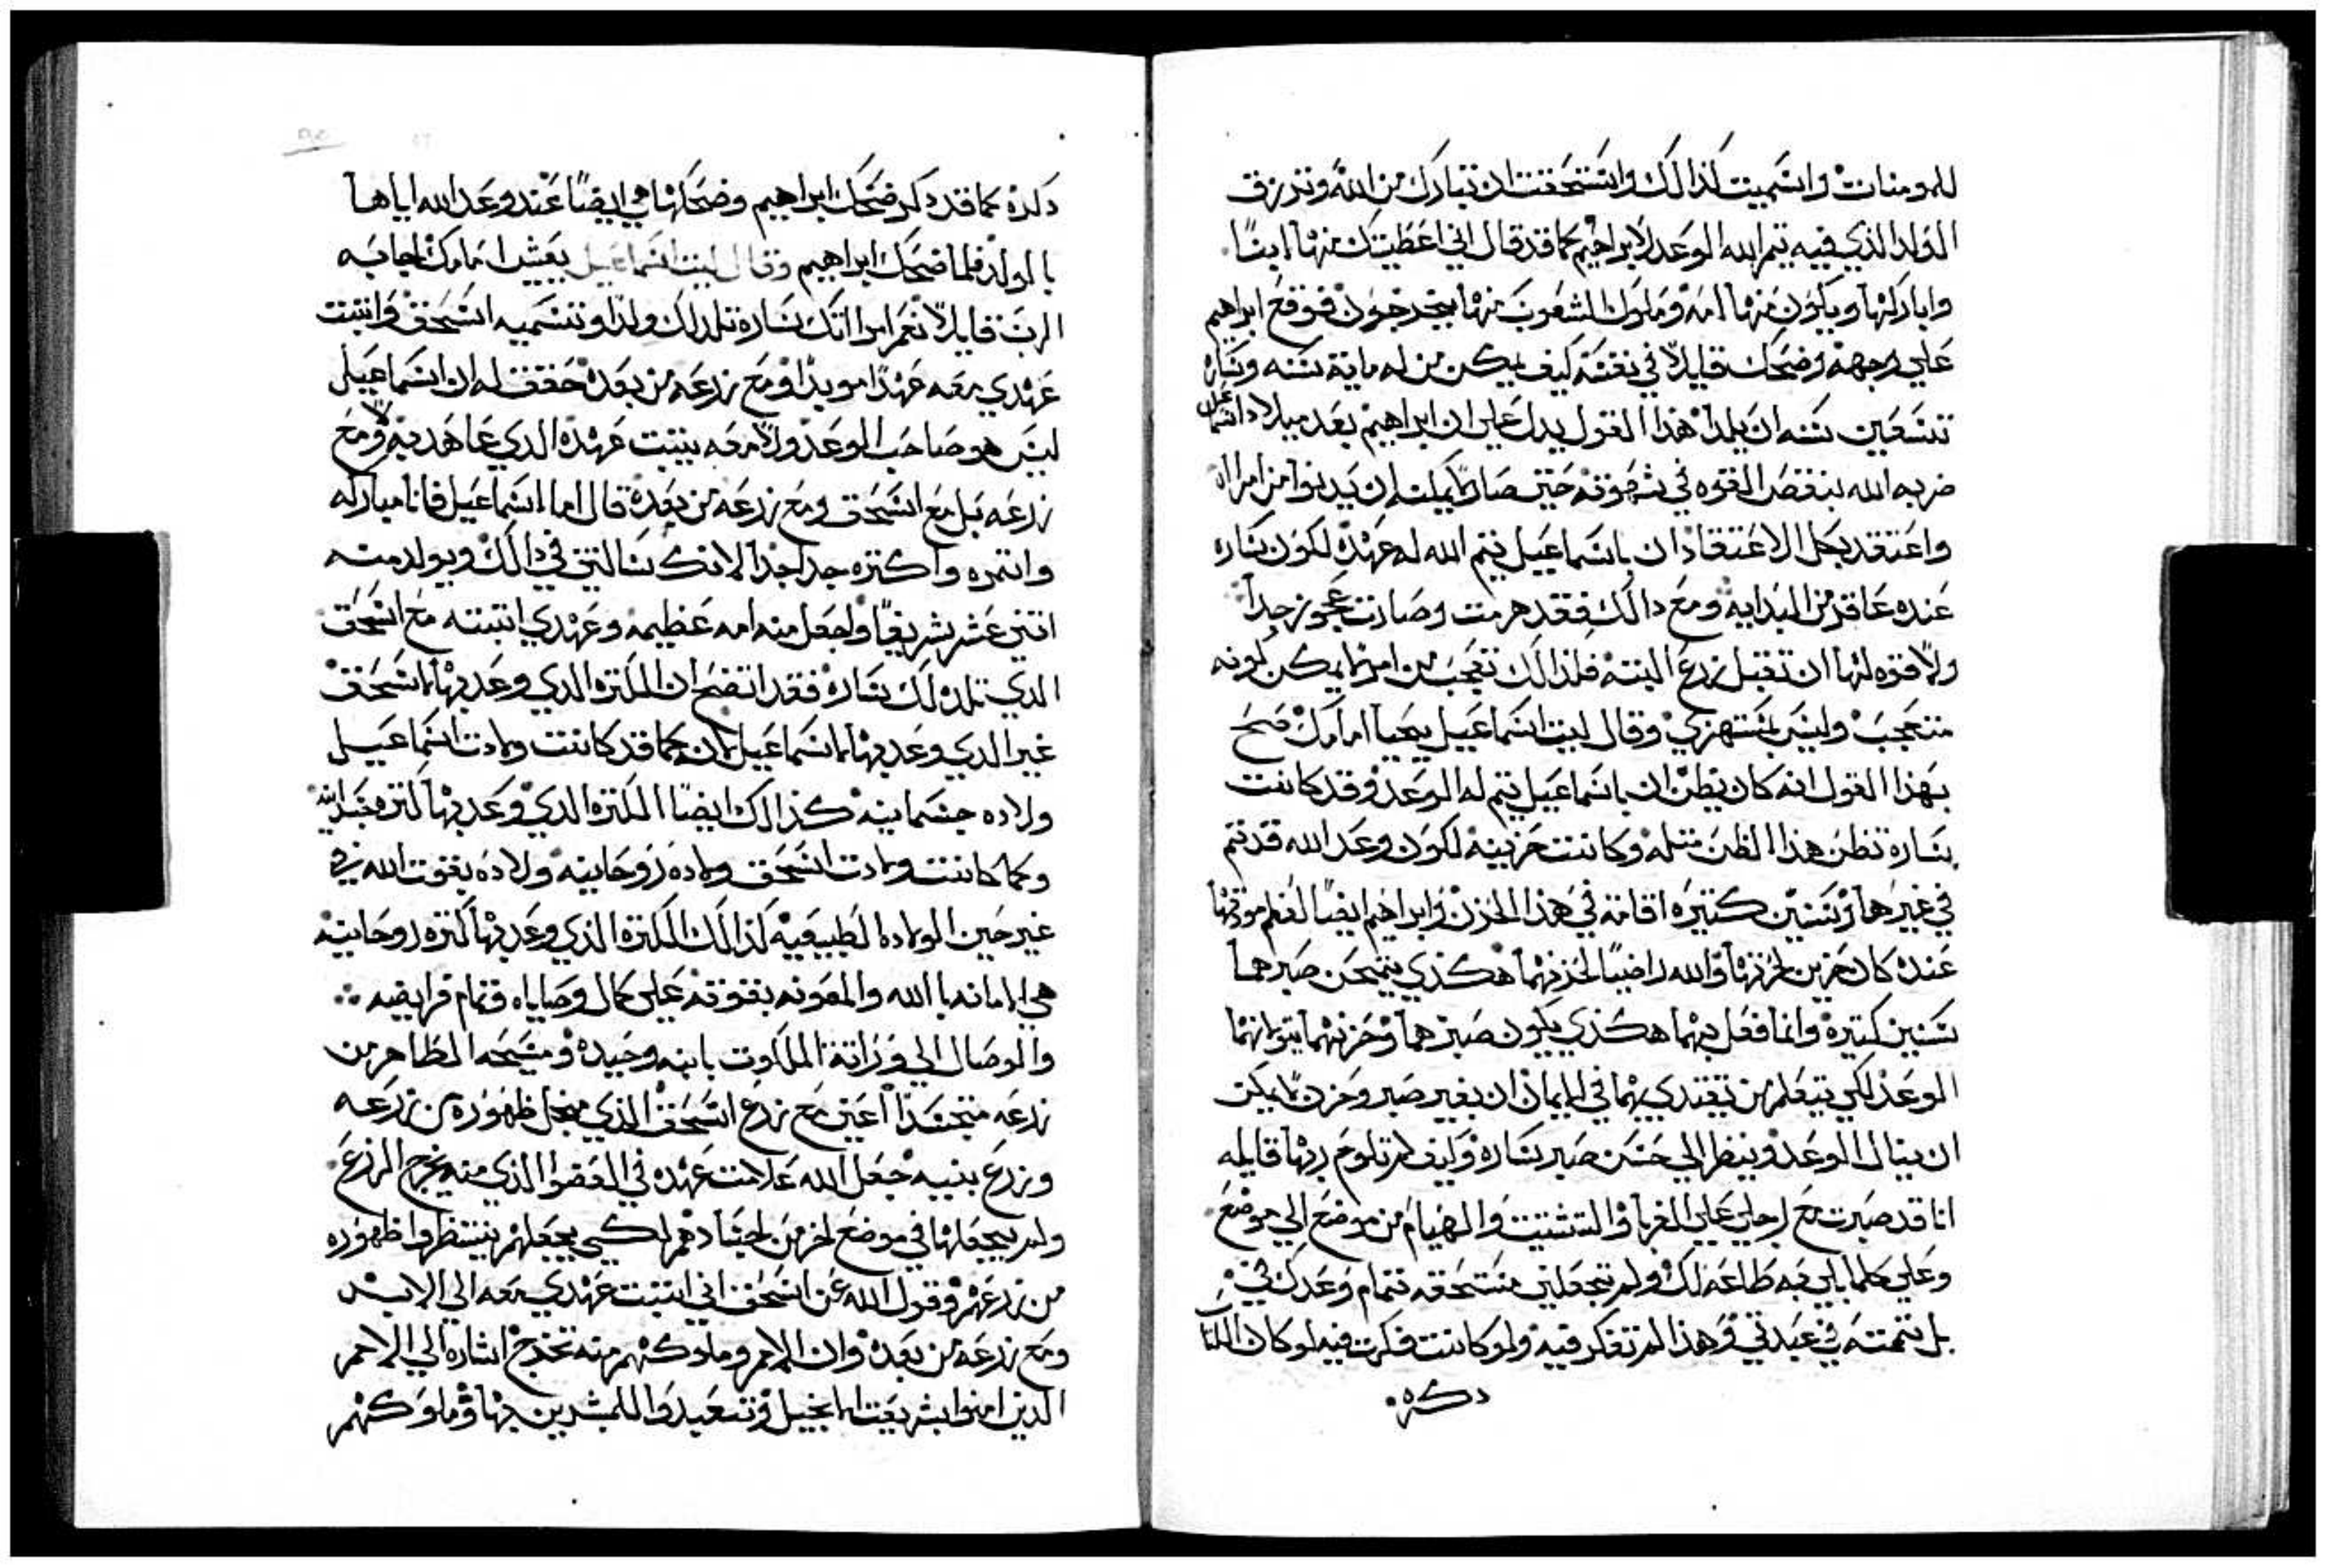 للمومنات واسميت كذالك واستحقت ان تبارك من الله وترزق
الولد الذي فيه يتم الله الوعد لابراهيم كما قد قال اني اعطيتك منها ابنا
واباركها ويكون منها امه وملوك الشعوب منها يخرجون فوقع ابراهيم
علي وجهه وضحك قايلا في نفسه كيف يمكن من له ماية سنه وساره
تسعين سنه ان يلدا هذا القول يدل علي ان ابراهيم بعد ميلاد اسماعيل
ضربه الله بنقص القوه في شهوته حتي صار لا يمكنه ان يدنوا من امراه
واعتقد بكل الاعتقاد ان باسماعيل يتم الله له عهده لكون ساره
عنده عاقر من البدايه ومع دالك فقد هرمت وصارت عجوز جدا
ولا قوه لها ان تقبل زرع البته فلذالك تعجب من امر لا يمكن كونه
متعجب وليس بمستهزي وقال ليت اسماعيل يحيا امامك صح
بهذا القول انه كان يظن ان باسماعيل يتم له الوعد وقد كانت
ساره تظن هذا الظن مثله وكانت حزينه لكون وعد الله قد تم
في غيرها وسنين كتيره اقامة في هذا الحزن وابراهيم ايضا لعظم مودتها
عنده كان حزين لحزنها والله راضيا لحزنهما هكذي يمتحن صبرهما
سنين كتيره وانما فعل بهما هكذي ليكون صبرهما وحزنهما يتوالهما
الوعد لكي يتعلم من يقتدي بهما في الايمان ان بغير صبر وحزن لا يمكن
ان ينال الوعد وينظر الي حسن صبر ساره وكيف لم تلوم ربها قايله
انا قد صبرت مع رجلي علي الغربا والتشتيت والهيام من موضع الي موضع
وعلي كلما يليق به طاعه لك ولم تجعلني مستحقه تمام وعدك في
بل تممته في عبدتي وهذا لم تفكر فيه ولو كانت فكرت فيه لو كان الكتاب
دكره
دكره كما قد دكر ضحك ابراهيم وضحكها هي ايضا عند وعد الله اياها
بالولد فلما ضحك ابراهيم وقال ليت اسماعيل يعيش امامك اجابه
الرب قايلا نعم امراتك ساره تلد لك ولدا وتسميه اسحق واتبت
عهدي معه عهدا موبدا ومع زرعه من بعده حقق له ان اسماعيل
ليس هو صاحب الوعد ولا معه يتبت عهده الذي عاهد به ولا مع
زرعه بل مع اسحق ومع زرعه من بعده قال اما اسماعيل فانا مباركه
وانمره واكتره جدا جدا لانك سالتني في دالك ويولد منه
اتني عشر شريفا واجعل منه امه عظيمه وعهدي اتبته مع اسحق
الدي تلده لك ساره فقد اتضح ان الكتره الدي وعد بها لاسحق
غير الدي وعد بها لاسماعيل لان كما قد كانت ولادت اسماعيل
ولاده جسمانيه كذالك ايضا الكتره الدي وعد بها كتره جسدانيه
وكما كانت ولادت اسحق ولاده روحانيه ولاده بقوت الله في
غير حين الولاده الطبيعيه كذالك الكتره الذي وعد بها كتره روحانيه
هي الامانه بالله والمعونه بقوته علي كمال وصاياه وتمام فرايضه
والوصال الي وراتة الملكوت بابنه وحيده ومسيحه الظاهر من
زرعه متجسدا اعني مع زرع اسحق الذي من اجل ظهوره من زرعه
وزرع بنيه جعل الله علامت عهده في العضو الذي منه يخرج الزرع
ولم يجعلها في موضع اخر من اجسادهم لكي يجعلهم ينتظروا ظهوره
من زرعهم وقول الله عن اسحق اني اتبت عهدي معه الي الابد
ومع زرعه من بعده وان الامم وملوكهم منه تخرج اشاره الي الامم
الذين امنوا بشريعت الانجيل وتعبدوا للمبشرين بها وملوكهم